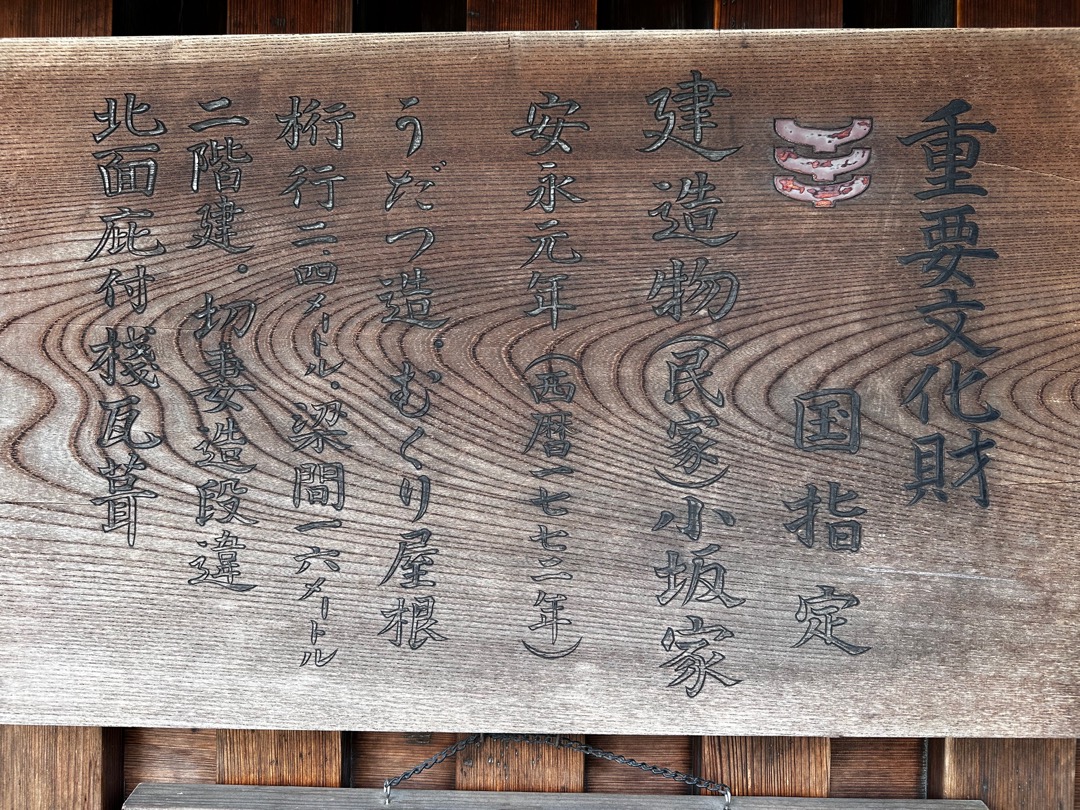 重要文化財
国指定
建造物(民家)小坂家
安永元年(西暦一七七二年)
うだつ造・むくり屋根
桁行二・四メートル・梁間一六メートル
二階建・切妻造段違
北面庇付棧瓦葺